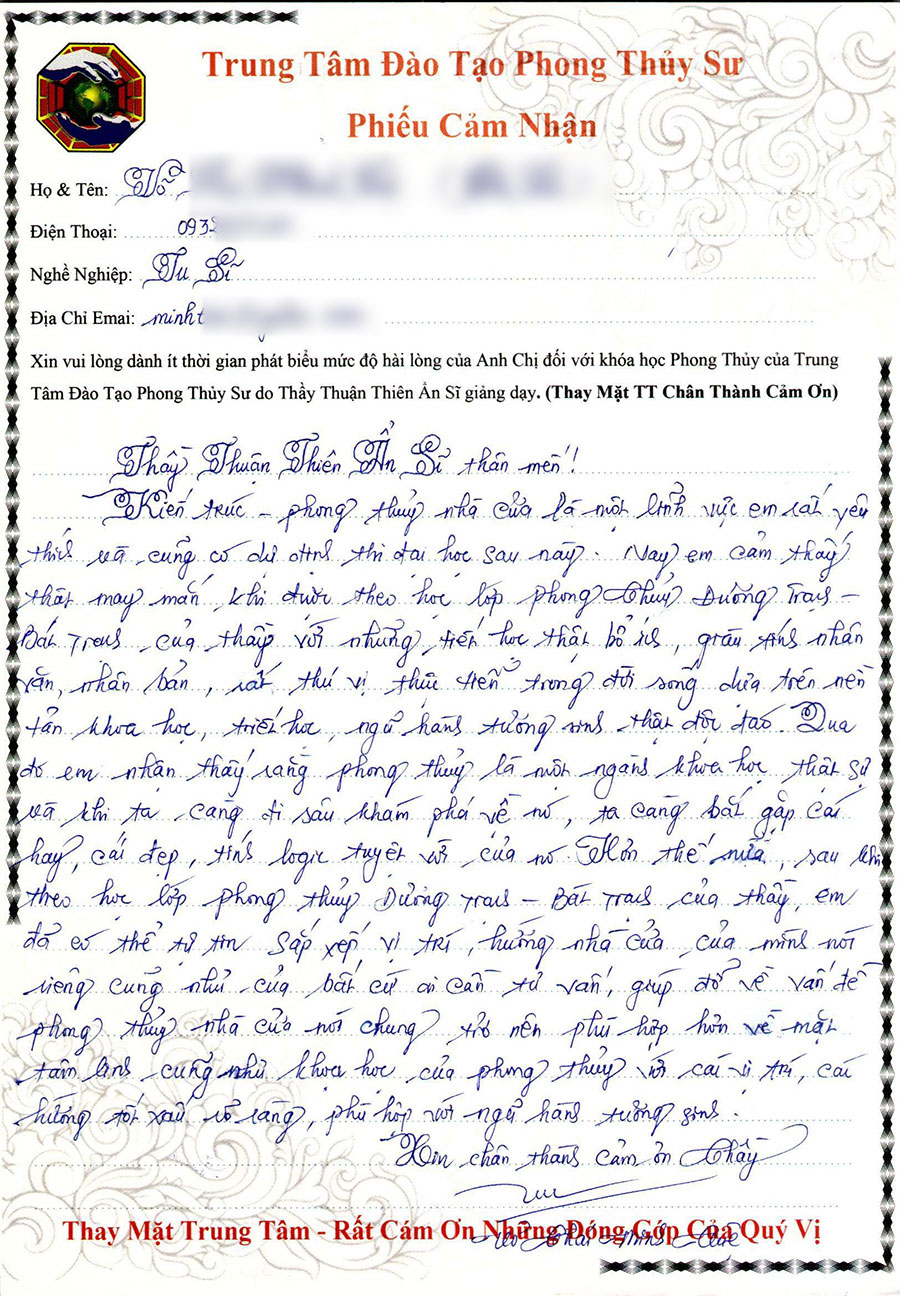 Trung Tâm Đào Tạo Phong Thủy Sư
Phiếu Cảm Nhận
Họ & Tên: Võ
Điện Thoại: 093
Nghề Nghiệp: Tu Sĩ
Địa Chỉ Emai: minht
Xin vui lòng dành ít thời gian phát biểu mức độ hài lòng của Anh Chị đối với khóa học Phong Thủy của Trung
Tâm Đào Tạo Phong Thủy Sư do Thầy Thuận Thiên Ẩn Sĩ giảng dạy. (Thay Mặt TT Chân Thành Cảm Ơn)
Thầy Thuận Thiên Ẩn Sĩ thân mến!
Kiến trúc – phong thủy nhà cửa là một lĩnh vực em rất yêu
thích và cũng có dự định thi đại học sau này. Nay em cảm thấy
thật may mắn khi được theo học lớp phong thủy Dương Trạch –
Bát Trạch của thầy với những tiết học thật bổ ích, giàu tính nhân
văn, nhân bản, rất thú vị thực tiễn trong đời sống dựa trên nền
tản khoa học, triết học, ngũ hành tương sinh thật độc đáo. Qua
đó em nhận thấy rằng phong thủy là một ngành khoa học thật sự
và khi ta càng đi sâu khám phá về nó, ta càng bắt gặp cái
hay, cái đẹp, tính logic tuyệt vời của nó. Hơn thế nữa, sau khi
theo học lớp phong thủy Dương Trạch – Bát Trạch của thầy, em
đã có thể tự tin sắp xếp vị trí, hướng nhà cửa của mình nói
riêng cũng như của bất cứ ai cần tư vấn, giúp đỡ về vấn đề
phong thủy nhà cửa nói chung trở nên phù hợp hơn về mặt
tâm linh cũng như khoa học của phong thủy với cái vị trí, cái
hướng tốt xấu rõ ràng, phù hợp với ngũ hành tương sinh.
Xin chân thành cảm ơn Thầy
Thay Mặt Trung Tâm - Rất Cám Ơn Những Đóng Góp Của Quý Vị